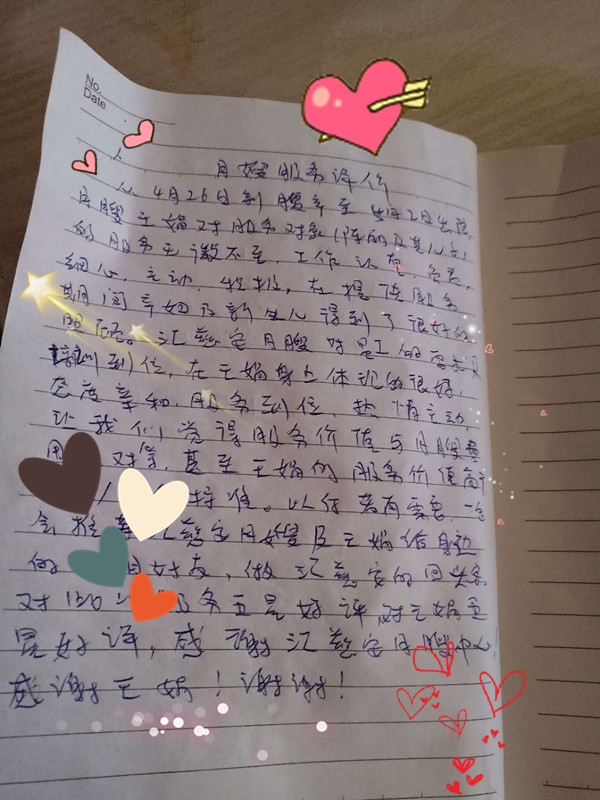 No.
Date
月嫂服务评价
从4月26日到腹产至5月2日出院,
月嫂王娟对服务对象
的服务无微不至,工作认真,负责,
细心,主动,积极,在提供服务
期间产妇及新生儿得到了很好的
照顾。汇慈定月嫂对员工的
培训到位,在王娟身上体现的很好,
态度亲和,服务到位,热情主动,
让我们觉得服务价值与月嫂
对等,甚至王娟的服务价值高于
标准。以后若有需要一定
会推荐汇慈定月嫂及王娟给身边
的 好友,做汇慈定的回头客
对 服务五星好评,对王娟五
星好评,感谢汇慈定月嫂中心!
感谢王娟!谢谢!